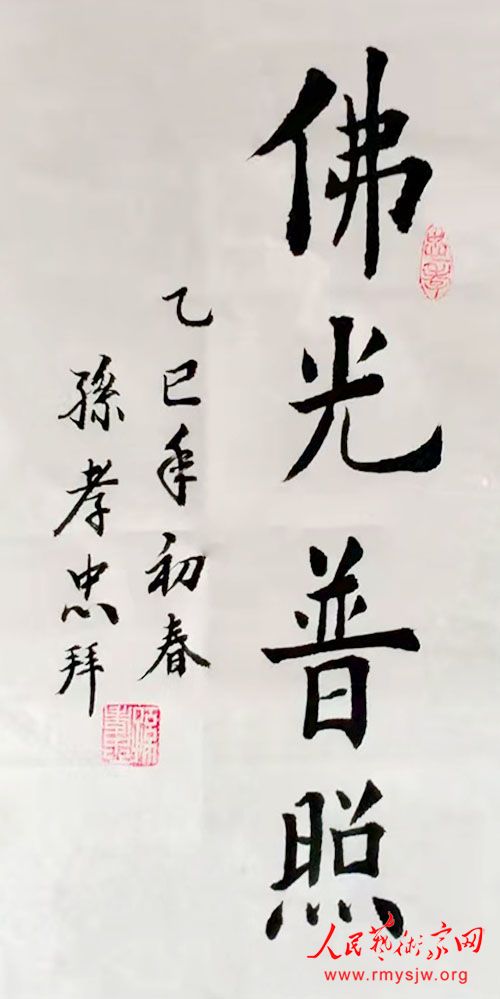 佛光普照
乙巳年初春
孫孝忠拜
人民藝術家网
www.rmysjw.org